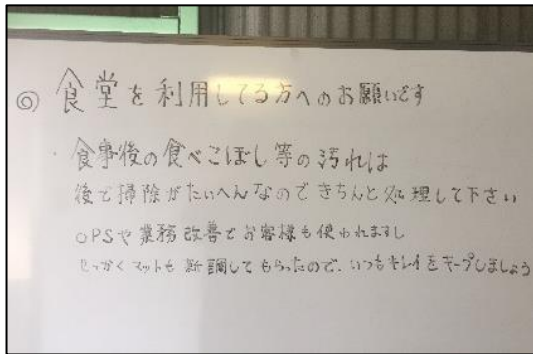 ◎ 食堂を利用してる方へのお願いです
・食事後の食べこぼし等の汚れは
後で掃除がたいへんなので きちんと処理して下さい
OPSや業務改善でお客様も使われますし
せっかくマットも新調してもらったので、いつもキレイをキープしましょう